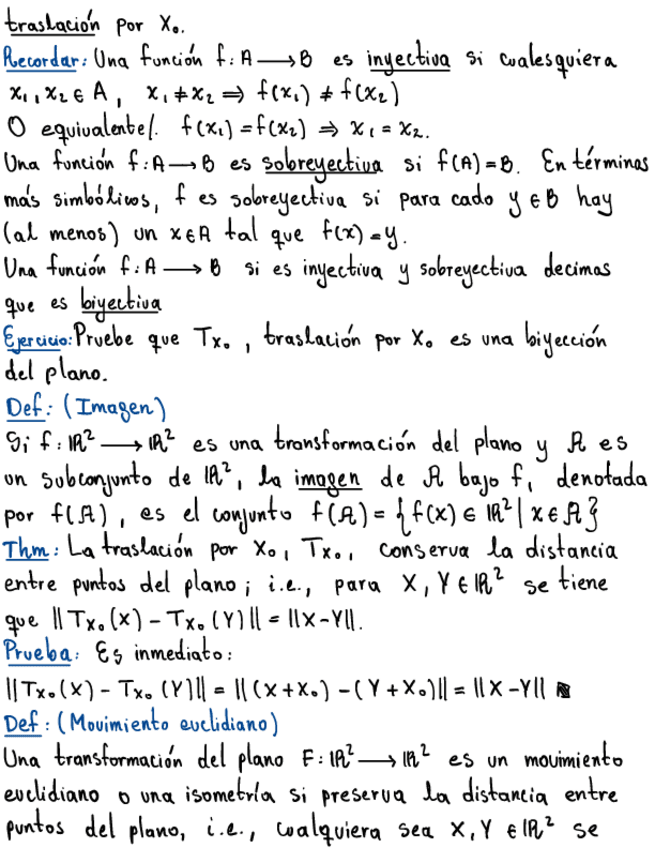 traslación por X₀.
Recordar: Una función f: A ⟶ B es inyectiva si cualesquiera
x₁, x₂ ∈ A, x₁ ≠ x₂ ⇒ f(x₁) ≠ f(x₂)
O equivalente/. f(x₁) = f(x₂) ⇒ x₁ = x₂.
Una función f: A ⟶ B es sobreyectiva si f(A) = B. En términos
más simbólicos, f es sobreyectiva si para cado y ∈ B hay
(al menos) un x ∈ A tal que f(x) = y.
Una función f: A ⟶ B si es inyectiva y sobreyectiva decimos
que es biyectiva
Ejercicio: Pruebe que T_X₀, traslación por X₀ es una biyección
del plano.
Def: (Imagen)
Si f: ℝ² ⟶ ℝ² es una transformación del plano y 𝓐 es
un subconjunto de ℝ², la imagen de 𝓐 bajo f, denotada
por f(𝓐), es el conjunto f(𝓐) = {f(x) ∈ ℝ² | x ∈ 𝓐}
Thm: La traslación por X₀, T_X₀, conserva la distancia
entre puntos del plano; i.e., para X, Y ∈ ℝ² se tiene
que ‖T_X₀(X) - T_X₀(Y)‖ = ‖X-Y‖.
Prueba: Es inmediato:
‖T_X₀(X) - T_X₀(Y)‖ = ‖(X+X₀) - (Y+X₀)‖ = ‖X-Y‖
Def: (Movimiento euclidiano)
Una transformación del plano F: ℝ² ⟶ ℝ² es un movimiento
euclidiano o una isometría si preserva la distancia entre
puntos del plano, i.e., cualquiera sea X, Y ∈ ℝ² se